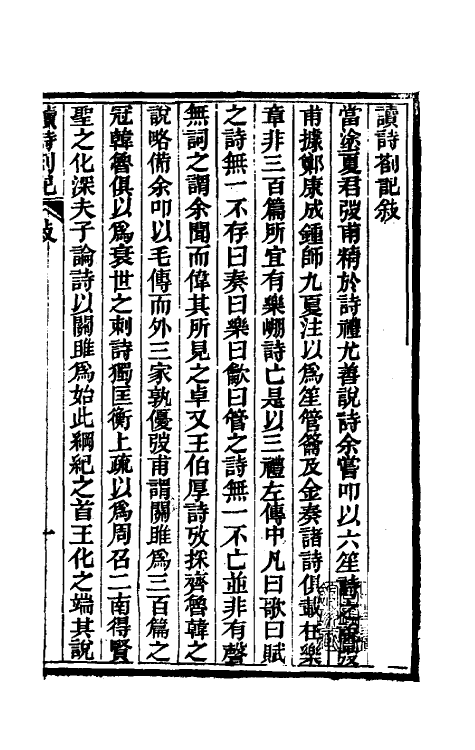 讀詩劄記敍
當塗夏君弢甫精於詩禮尤善說詩余嘗叩以六笙詩弢
甫據鄭康成鍾師九夏注以爲笙管簫及金奏諸詩俱載在樂
章非三百篇所宜有樂崩詩亡是以三禮左傳中凡曰歌曰賦
之詩無一不存曰奏曰樂曰龡曰管之詩無一不亡並非有聲
無詞之謂余聞而偉其所見之卓又王伯厚詩攷採齊魯韓之
說略備余叩以毛傳而外三家孰優弢甫謂關雎爲三百篇之
冠韓魯俱以爲衰世之刺詩獨匡衡上疏以爲周召二南得賢
聖之化深夫子論詩以關雎爲始此綱紀之首王化之端其說
讀詩劄記
敍
一